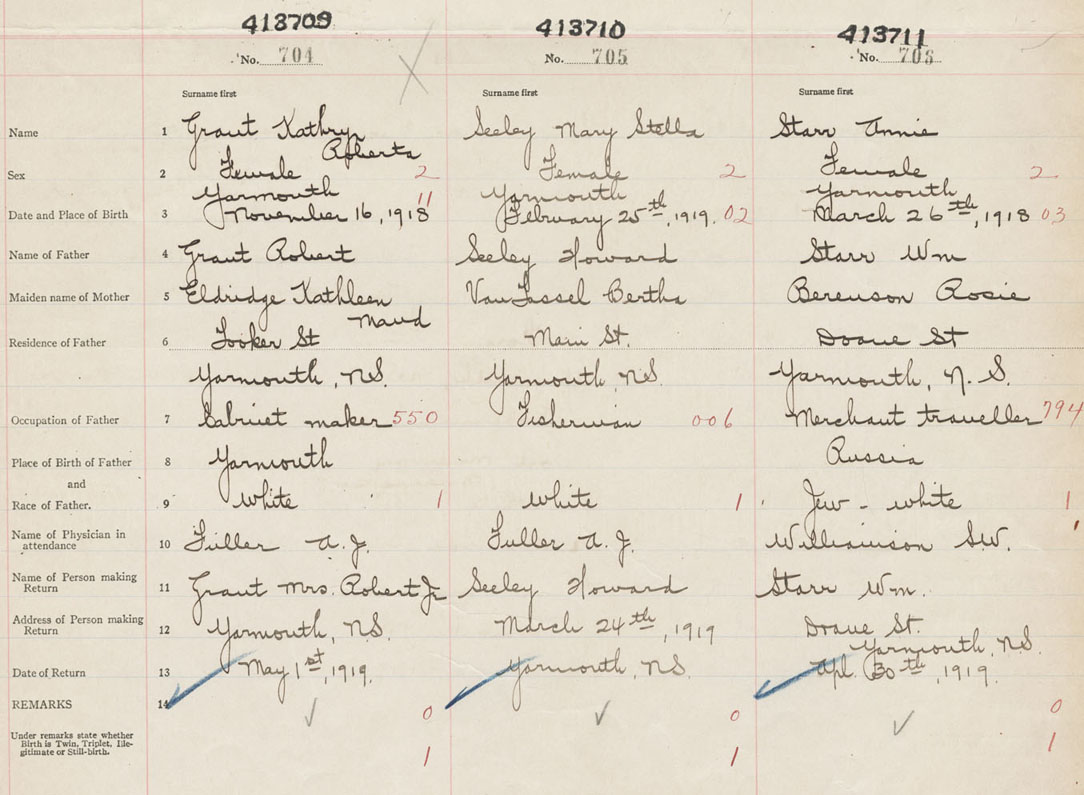 413709 413710 413711
No. 704 No. 705 No. 706
Surname first Surname first Surname first
Name 1 Grant Kathryn Seeley Mary Stella Starr Annie
Roberta
Sex 2 Female 2 Female 2 Female 2
Yarmouth 11 Yarmouth Yarmouth
Date and Place of Birth 3 November 16, 1918 February 25th, 1919. 02 March 26th, 1918 03
Name of Father 4 Grant Robert Seeley Howard Starr Wm
Maiden name of Mother 5 Eldridge Kathleen VanTassel Bertha Berenson Rosie
Maud
Residence of Father 6 Tooker St Main St. Doane St
Yarmouth, N.S. Yarmouth, N.S. Yarmouth, N.S.
Occupation of Father 7 Cabinet maker 550 Fisherman 006 Merchant traveller 794
Place of Birth of Father 8 Yarmouth Russia
and
Race of Father. 9 White 1 White 1 Jew - white 1
Name of Physician in
attendance 10 Fuller A. J. Fuller A. J. Williamson S.W.
Name of Person making
Return 11 Grant Mrs. Robert Jr Seeley Howard Starr Wm.
Address of Person making
Return 12 Yarmouth, N.S. March 24th, 1919 Doane St.
Yarmouth, N.S.
Date of Return 13 May 1st, 1919. Yarmouth, N.S. Apl. 30th, 1919.
REMARKS 14 0 0 0
Under remarks state whether
Birth is Twin, Triplet, Ille-
gitimate or Still-birth. 1 1 1